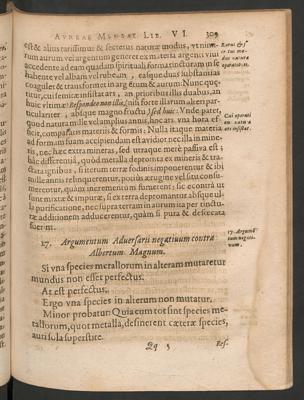 AVREAE MENSAE LIB. VI. 309
est & alius rarissimus & secretus naturæ modus, vt nim-
rum aurum vel argentum generet ex materia argenti viui
accedente ad eam quadam spirituali forma tincturam in se
habente vel albam vel rubeam, easque duas substantias
coagulet & transformet in argentum & aurum: Nunc quæ-
ritur, cui semicæ insistat ars, an prioribus illis duabus, an
huic vltimæ? Respondeo non illis, (nisi forte illarum alteri par-
ticulariter, absque magno fructu) sed huic: Vnde patet,
quod natura mille vel amplius annis, hoc ars vna hora ef-
ficit, comparatis materiis & formis: Nulla itaque materia
ad formam suam accipiendam est avidior necilla in mine-
ris, nec hæc extra mineras, sed utraque mere passiva est;
hac differentiâ, quòd metalla depromta ex mineris & tra-
ctata ignibus, si iterum terræ fodinis imponerentur & ibi
nullis annis relinquerentur, potius ærugine vel situ consu-
merentur, quàm incrementum sumerent: sic econtrà ut
sunt mixtæ & impuræ, si ex terra depromantur absque ul-
la purificatione, nec supra terram in aurum ita per tinctu-
ræ additionem adducerentur, quàm si pura & defæcata
fuerint.
Rarus &
modus natura
Cui operati
oni naturæ
ars insistat.
17. Argumentum Adversarii negativum contra
Albertum Magnum.
17. Argumẽ
tum negati-
vum.
Si vna species metallorum in alteram mutaretur
mundus non esset perfectus.
At est perfectus.
Ergo vna species in alterum non mutatur.
Minor probatur: Quia cum tot sint species me-
tallorum, quot metalla, desinerent cæteræ species,
auri sola superstite.
Qq 3 Res.